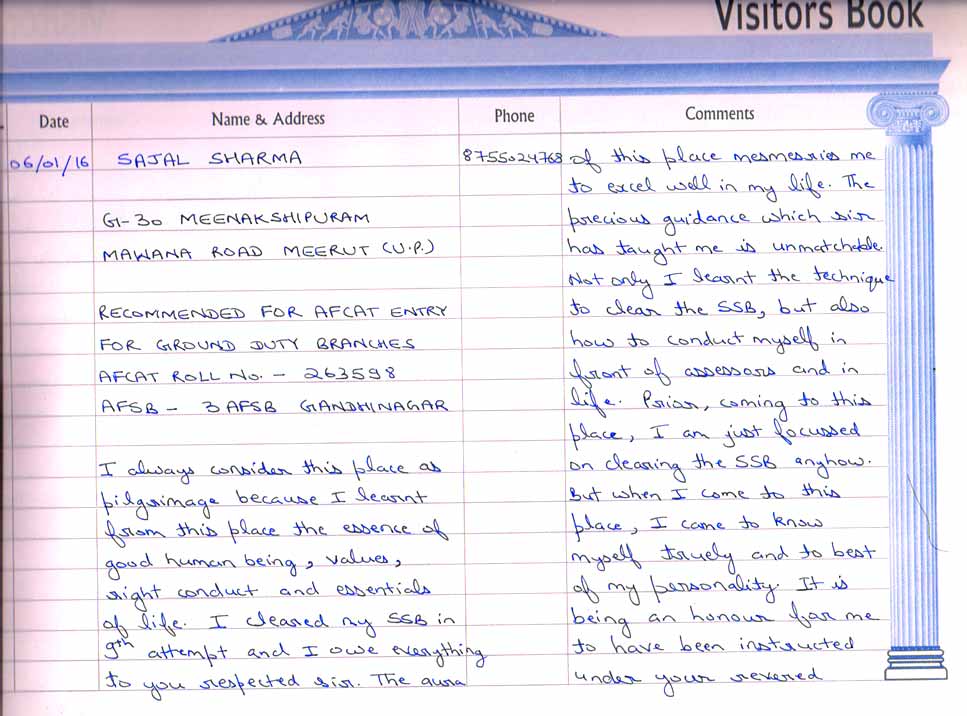 Visitors Book
Date
Name & Address
Phone
Comments
06/01/16
SAJAL SHARMA
G-30 MEENAKSHIPURAM
MAWANA ROAD MEERUT (U.P.)
RECOMMENDED FOR AFCAT ENTRY
FOR GROUND DUTY BRANCHES
AFCAT ROLL No. - 263598
AFSB - 3 AFSB GANDHINAGAR
I always consider this place as
pilgrimage because I learnt
from this place the essence of
good human being, values,
right conduct and essentials
of life. I cleared my SSB in
9th attempt and I owe everything
to you respected sir. The aura
8755024768
of this place mesmesries me
to excel well in my life. The
precious guidance which sir
has taught me is unmatchable.
Not only I learnt the technique
to clear the SSB, but also
how to conduct myself in
front of assessors and in
life. Prior, coming to this
place, I am just focussed
on clearing the SSB anyhow.
But when I come to this
place, I came to know
myself truely and to best
of my personality. It is
being an honour for me
to have been instructed
under your revered